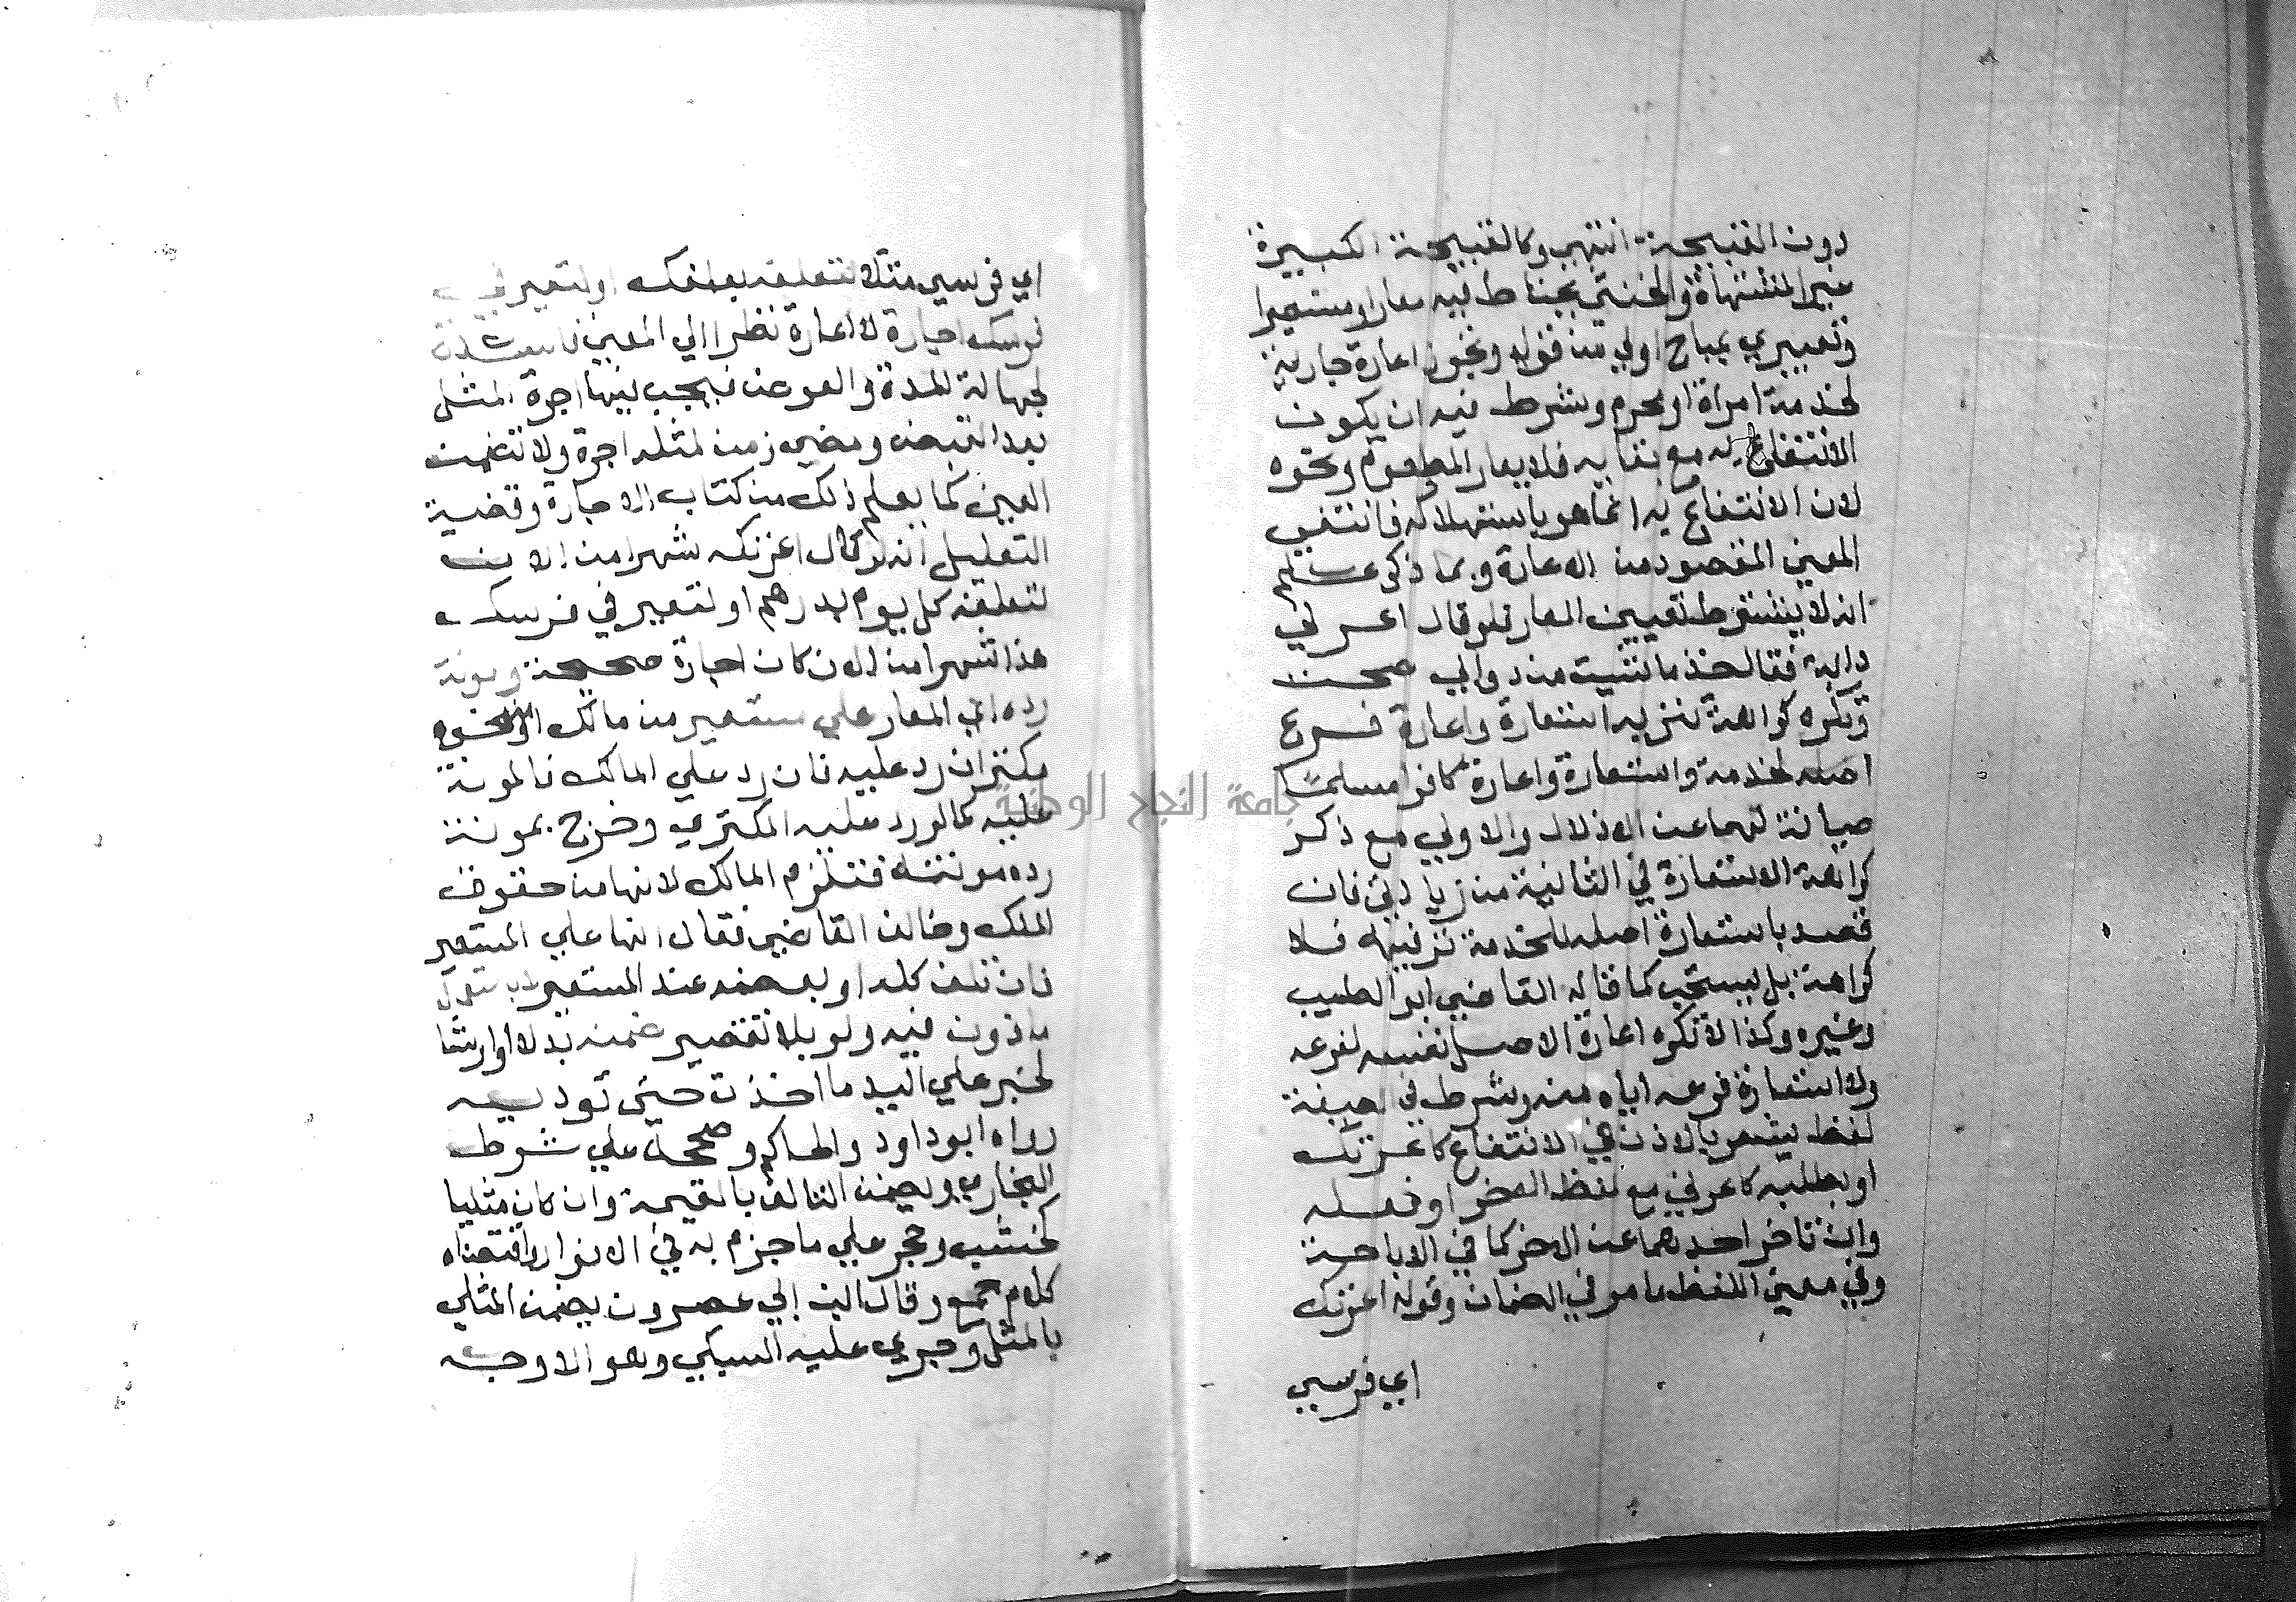 دون القبيحة انتهي وكالقبيحة الكبيرة
غير المشتهاة والخنثي يحتاط فيه معارا ومستعيرا
وتعبيري بمباح اولي من قوله وتجوز اعارة جارية
لخدمة امراة او محرم وشرط فيه ان يكون
الانتفاع به مع بقايه فلا يعار المطعوم ونحوه
لان الانتفاع به انما هو باستهلاكه فانتفي
المعني المقصود من الاعارة وبما ذكر علم
انه لا يشترط تعيين المعار فلو قال اعرني
دابة فقال خذ ما شيت من دوابي صحت
وتكره كراهة تنزيه استعارة واعارة فرع
اصله لخدمة واستعارة واعارة كافر مسلما
صيانة لهما عن الاذلال والاولي مع ذكر
كراهة الاستعارة في الثانية من زيادتي فان
قصد باستعارة اصله للخدمة ترفيهه فلا
كراهة بل يستحب كما قاله القاضي ابو الطيب
وغيره وكذا لا تكره اعارة الاصل نفسه لفرعه
ولا استعارة فرعه اياه منه وشرط في الصيغة
لفظ يشعر بالاذن في الانتفاع كاعرتك
او بطلبه كاعرني مع لفظ الاخر او فعله
وان تاخر احدهما عن الاخر كما في الاباحة
وفي معني اللفظ ما مر في الضمان وقوله اعرتك
اي فرسي
اي فرسي مثلا لتعلفه بعلفك او لتعيرني
فرسك اجارة لا اعارة نظرا الي المعني فاسدة
لجهالة المدة والعوض فيجب فيها اجرة المثل
بعد القبض ومضي زمن لمثله اجرة ولا تضمن
العين كما يعلم ذلك من كتاب الاجارة وقضية
التعليل انه لو قال اعرتكه شهرا من الان
لتعلفه كل يوم بدرهم او لتعيرني فرسك
هذا شهرا من الان كان اجارة صحيحة ومونة
رده اي المعار علي مستعير من مالك او من نحو
مكتر ان رد عليه فان رد علي المالك فالمونة
عليه كما لو رد عليه المكتري وخرج بمونة
رده مونته فتلزم المالك لانها من حقوق
الملك وخالف القاضي فقال انها علي المستعير
فان تلف كله او بعضه عند المستعير لا باستعمال
ماذون فيه ولو بلا تقصير ضمنه بدلا او ارشا
لخبر علي اليد ما اخذت حتي توديه
رواه ابو داود والحاكم وصححه علي شرط
البخاري ويضمن التالف بالقيمة وان كان مثليا
كخشب وحجر علي ما جزم به في الانوار واقتضاه
كلام جمع وقال ابن ابي عصرون يضمن المثلي
بالمثل وجري عليه السبكي وهو الاوجه
جامعة النجاح الوطنية